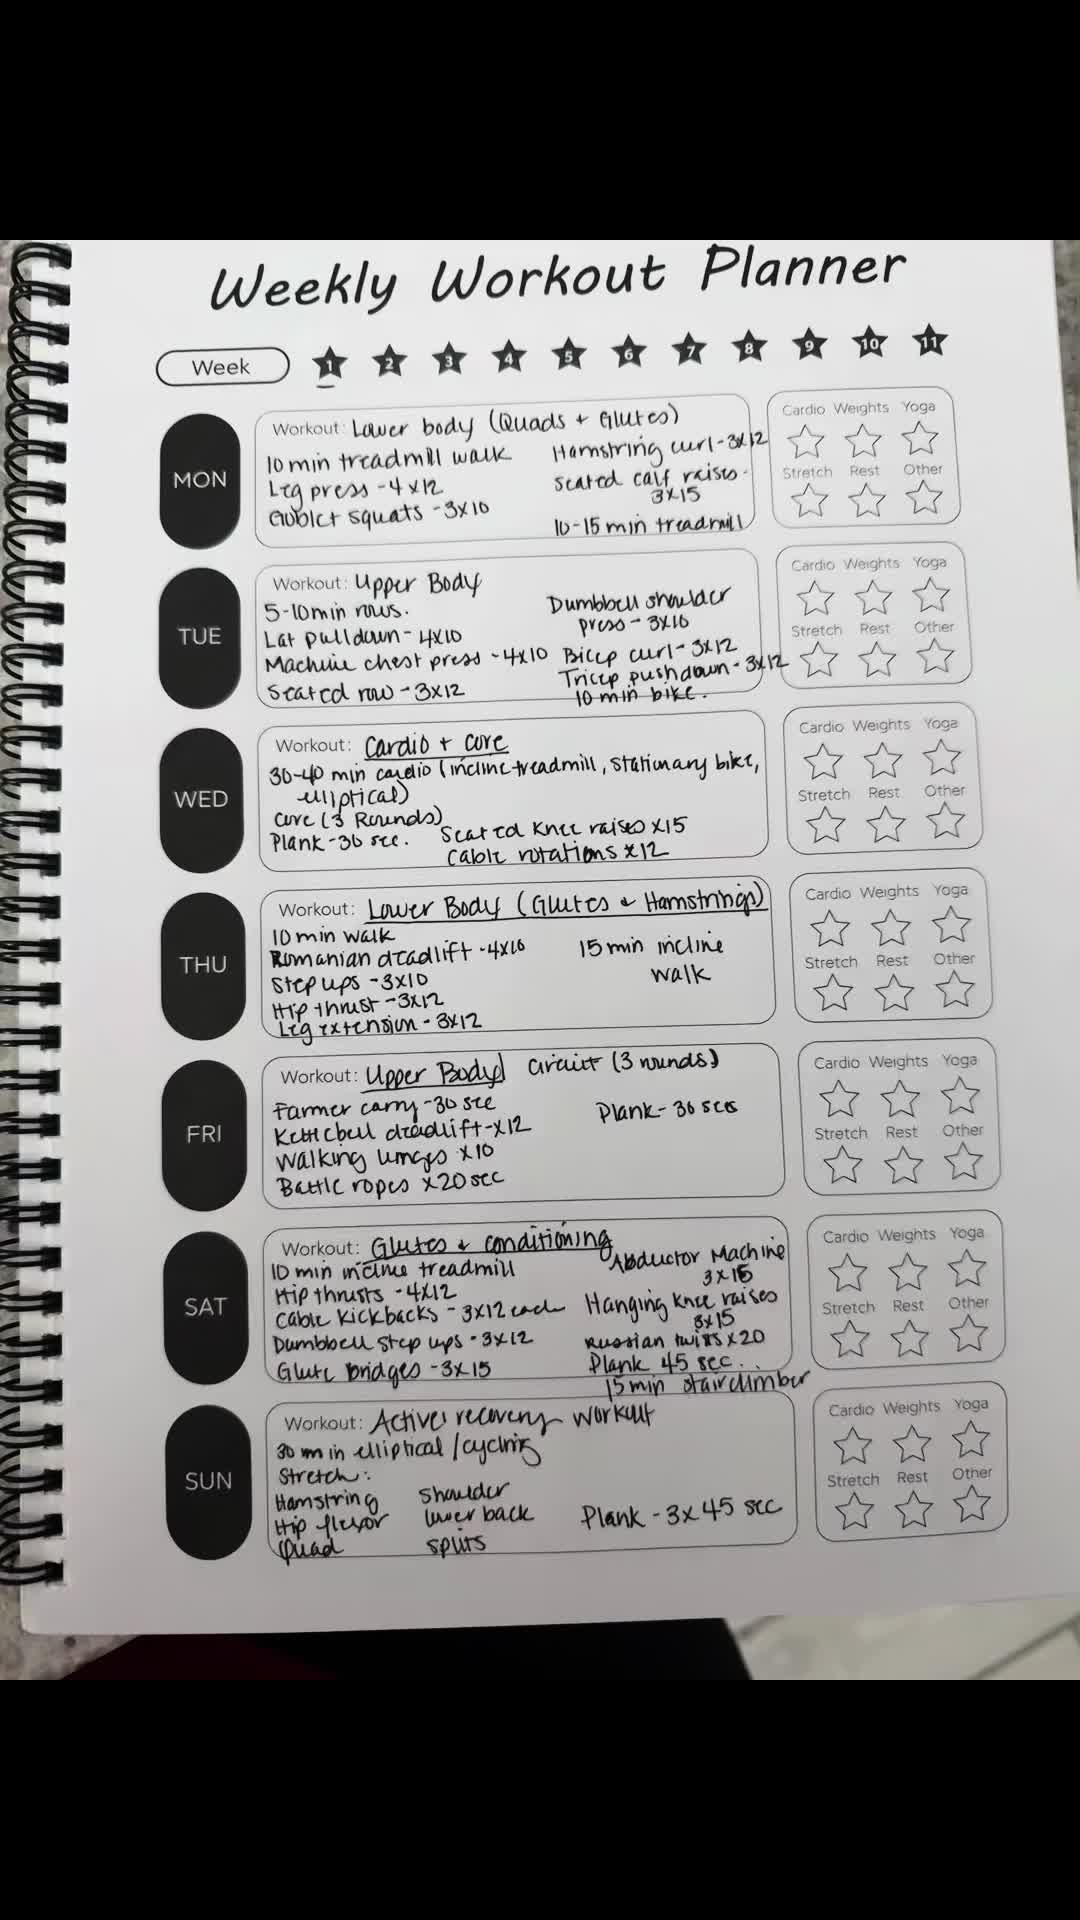 Weekly Workout Planner
Week 1 2 3 4 5 6 7 8 9 10 11
MON
Workout: Lower body (Quads + Glutes)
10 min treadmill walk
Leg press - 4x12
Goblet squats - 3x10
Hamstring curl - 3x12
Seated calf raises -
3x15
10-15 min treadmill
Cardio Weights Yoga
Stretch Rest Other
TUE
Workout: Upper Body
5-10min rows.
Lat pulldown - 4x10
Machine chest press - 4x10
Seated row - 3x12
Dumbbell shoulder
press - 3x10
Bicep curl - 3x12
Tricep pushdown - 3x12
10 min bike.
Cardio Weights Yoga
Stretch Rest Other
WED
Workout: Cardio + core
30-40 min cardio (incline treadmill, stationary bike,
elliptical)
core (3 Rounds)
Plank - 30 sec.
Seated knee raises x15
Cable rotations x12
Cardio Weights Yoga
Stretch Rest Other
THU
Workout: Lower Body (Glutes + Hamstrings)
10 min walk
Romanian deadlift - 4x10
Step ups - 3x10
Hip thrust - 3x12
Leg extension - 3x12
15 min incline
walk
Cardio Weights Yoga
Stretch Rest Other
FRI
Workout: Upper Body circuit (3 rounds)
Farmer carry - 30 sec
Kettlebell deadlift - x12
Walking lunges x10
Battle ropes x20 sec
Plank - 30 secs
Cardio Weights Yoga
Stretch Rest Other
SAT
Workout: Glutes + conditioning
10 min incline treadmill
Hip thrusts - 4x12
Cable Kickbacks - 3x12 each
Dumbbell Step ups - 3x12
Glute bridges - 3x15
Abductor Machine
3x15
Hanging knee raises
3x15
Russian twists x20
Plank 45 sec..
15 min stairclimber
Cardio Weights Yoga
Stretch Rest Other
SUN
Workout: Active recovery workout
30 min elliptical / cycling
Stretch:
Hamstring
Hip flexor
Quad
shoulder
lower back
splits
Plank - 3x45 sec
Cardio Weights Yoga
Stretch Rest Other